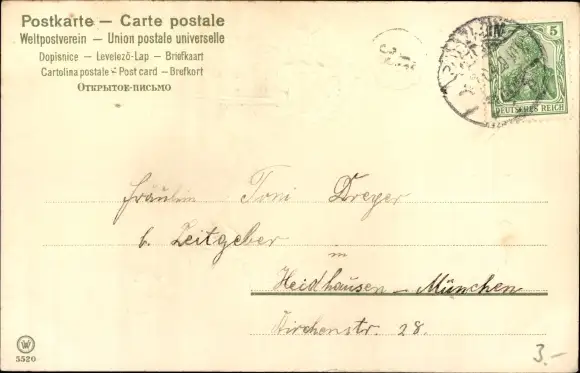 Postkarte — Carte postale
Weltpostverein – Union postale universelle
Dopisnice – Levelező-Lap – Briefkaart
Cartolina postale – Post card – Brefkort
Открытое-письмо
5
DEUTSCHES REICH
Fräulein Toni Dreyer
b. Zeitgeber
in
Heidhausen – München
Kirchenstr. 28.
5520
3.-